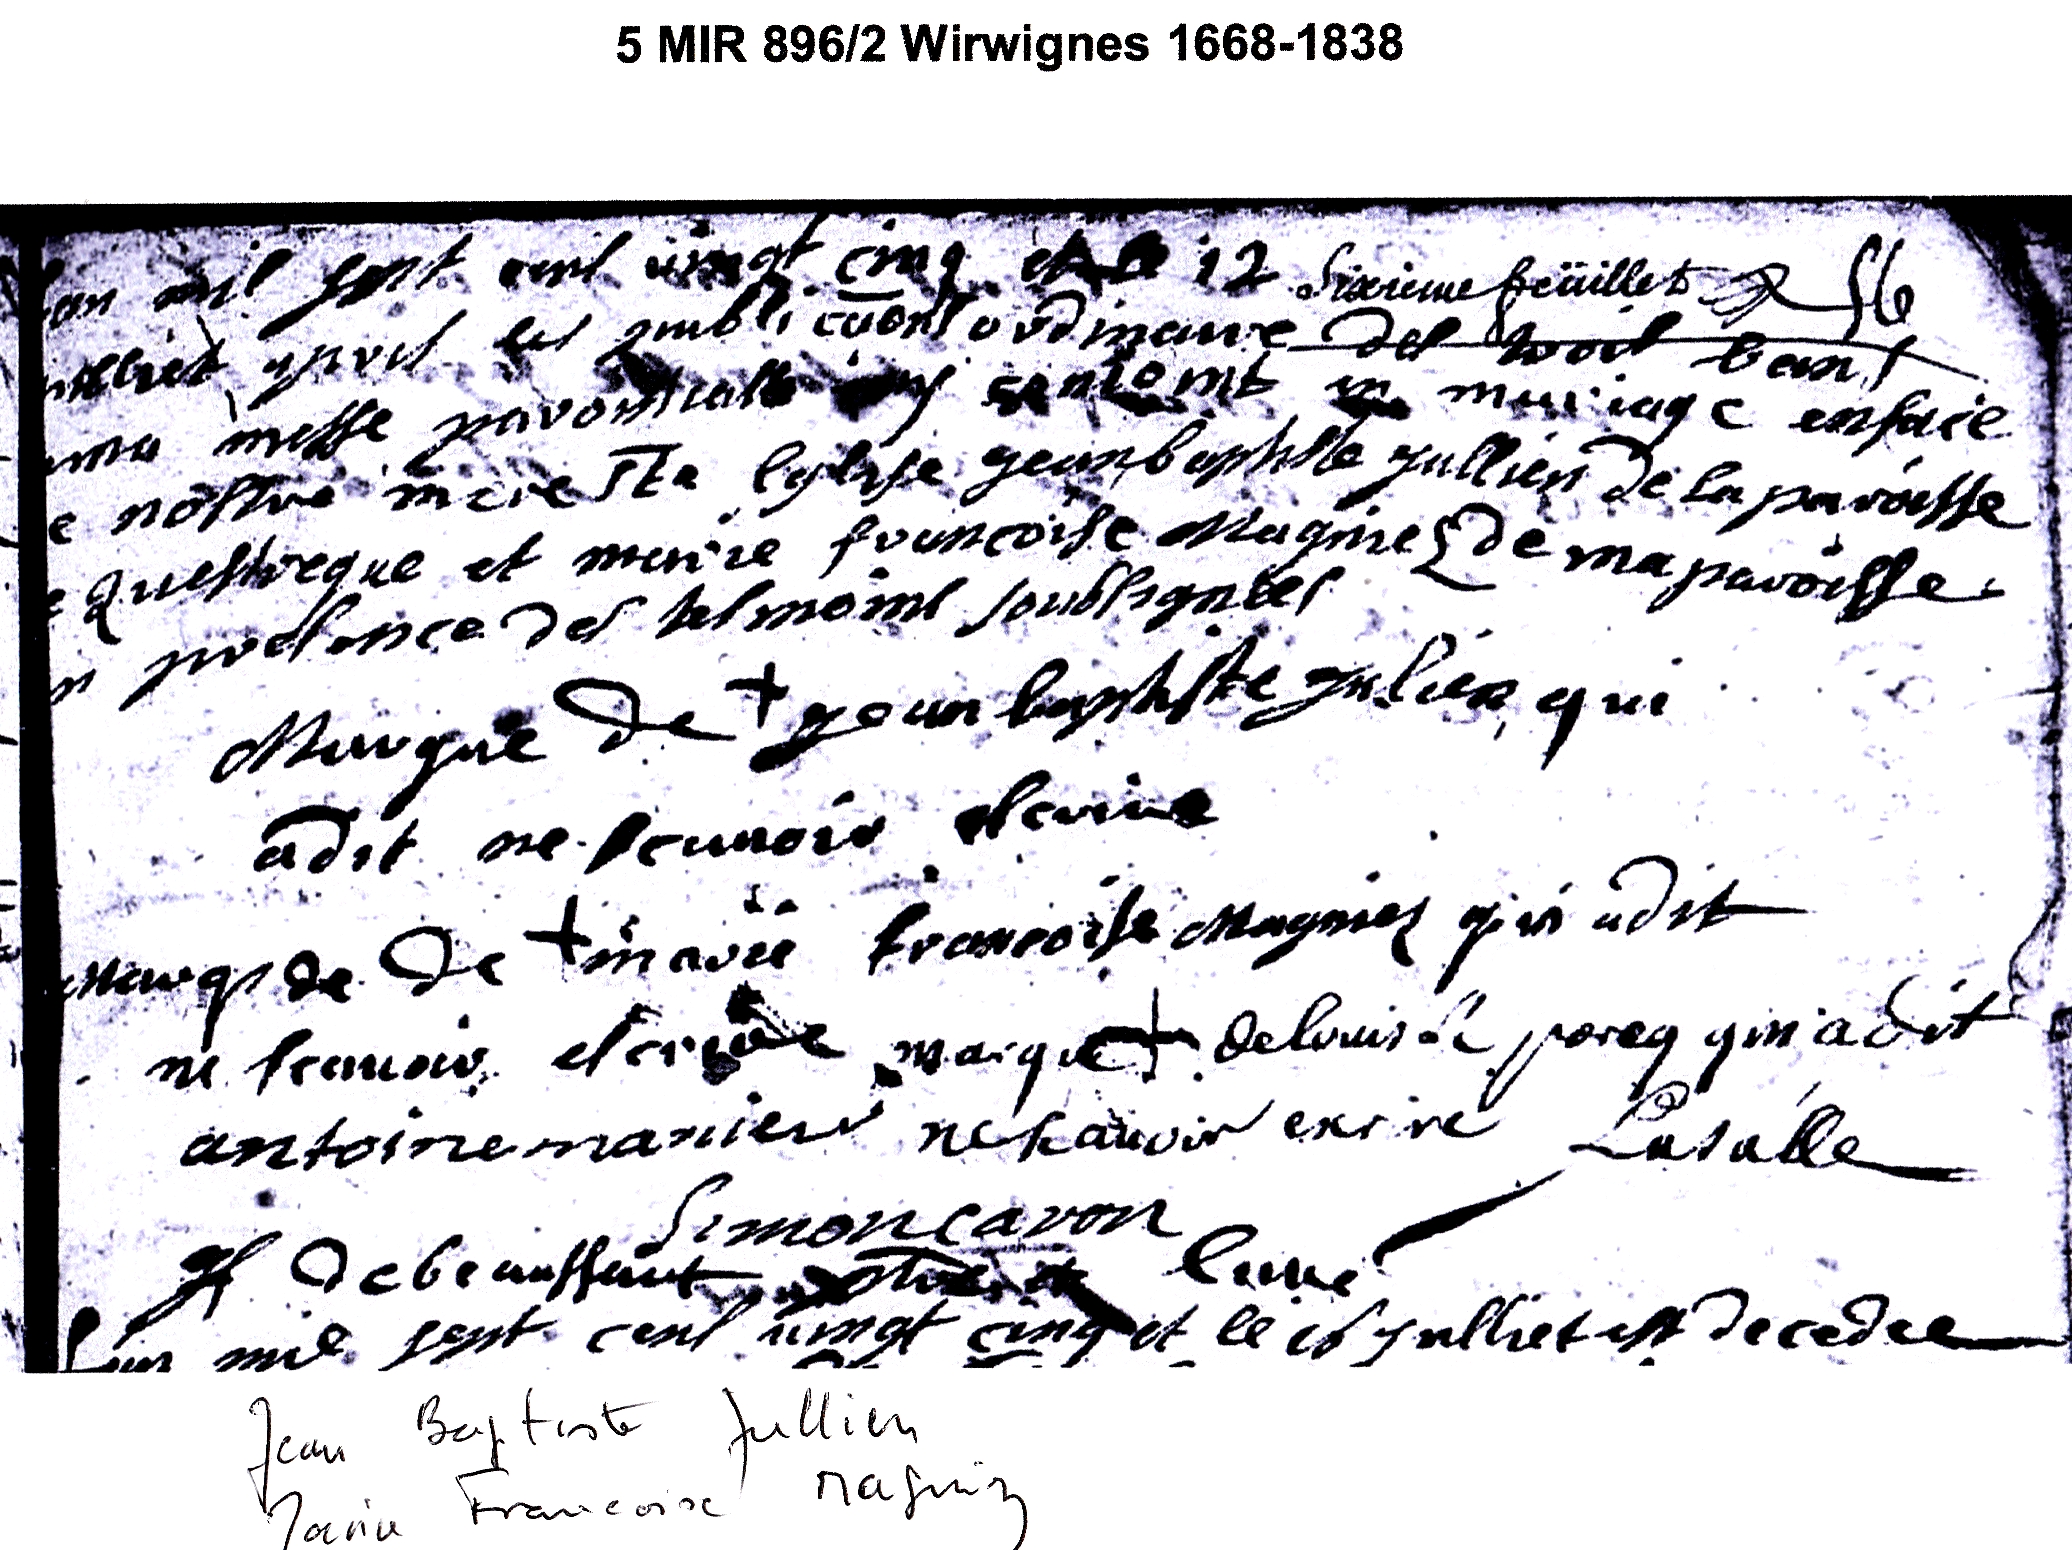 5 MIR 896/2 Wirwignes 1668-1838
Sixieme feüillet 56
lan mil sept cent vingt cinq et le 12
julliet apres les publications ordinaire des trois bans
ma messe paroissialle conjoints en mariage en face
e nostre mere ste Eglise jean baptiste jullien de la paroisse
e Questreque et marie francoise Magniez de ma paroisse
n presence des tesmoins soubsignees
Marque de + jean baptiste julien qui
a dit ne scavoir escrire
Marq de de + marie francoise Magniez qui a dit
ne scavoir escrire marque + de louis poreq qui a dit
antoine manier ne scavoir excrire Lasalle
Simon caron
debeaussart curé
Lan mil sept cent vingt cinq et le 16 julliet est decedee
Jean Baptiste Jullien
Marie Francoise Magniez